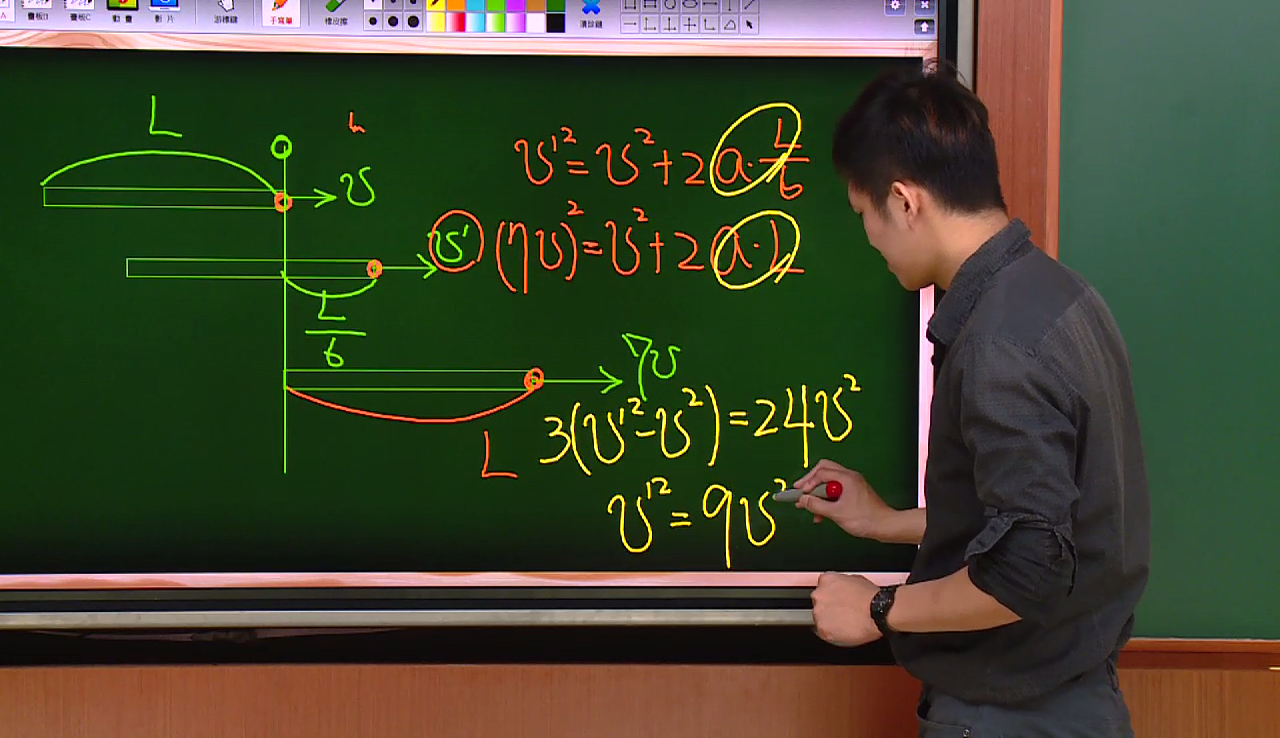 動畫 影片 游標鍵 手寫筆 橡皮擦 清除鍵
L
v
v'
L/6
7v
L
v'² = v² + 2a·L/6
(7v)² = v² + 2a·L
3(v'² - v²) = 24v²
v'² = 9v²